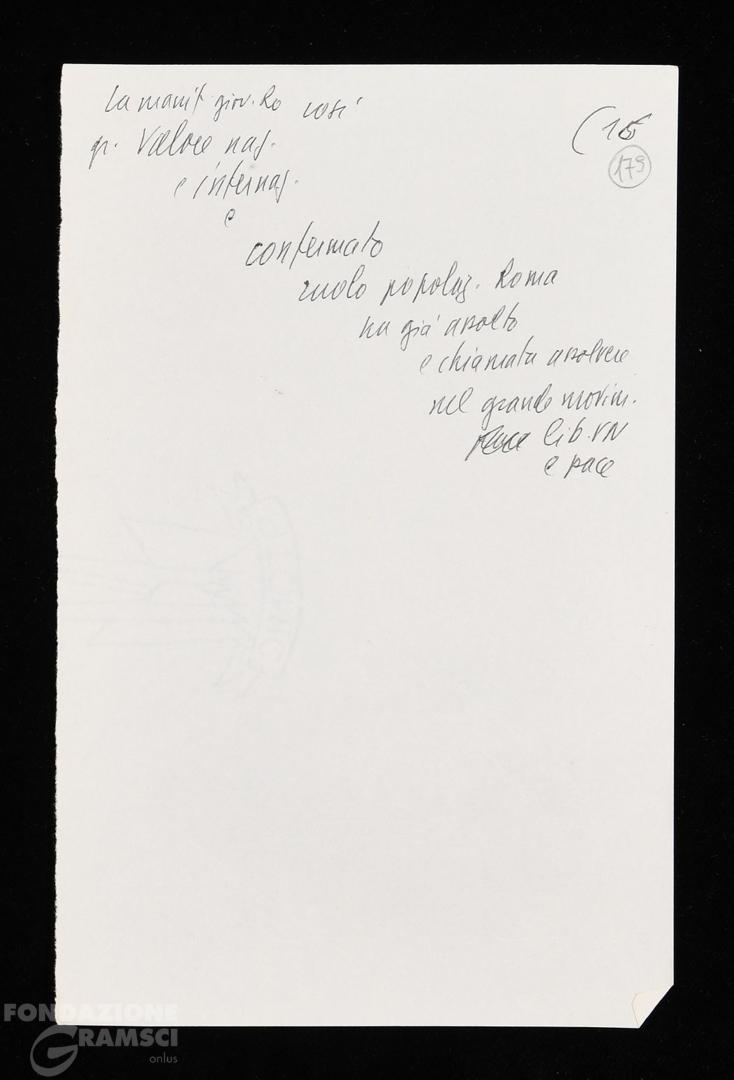 La manif giov. Ro così
gr. valore naz.
e internaz.
e
confermato
ruolo popolaz. Roma
ha già assolto
e chiamata assolvere
nel grande movim.
pace lib. VN
e pace
(15
179
FONDAZIONE
GRAMSCI
onlus